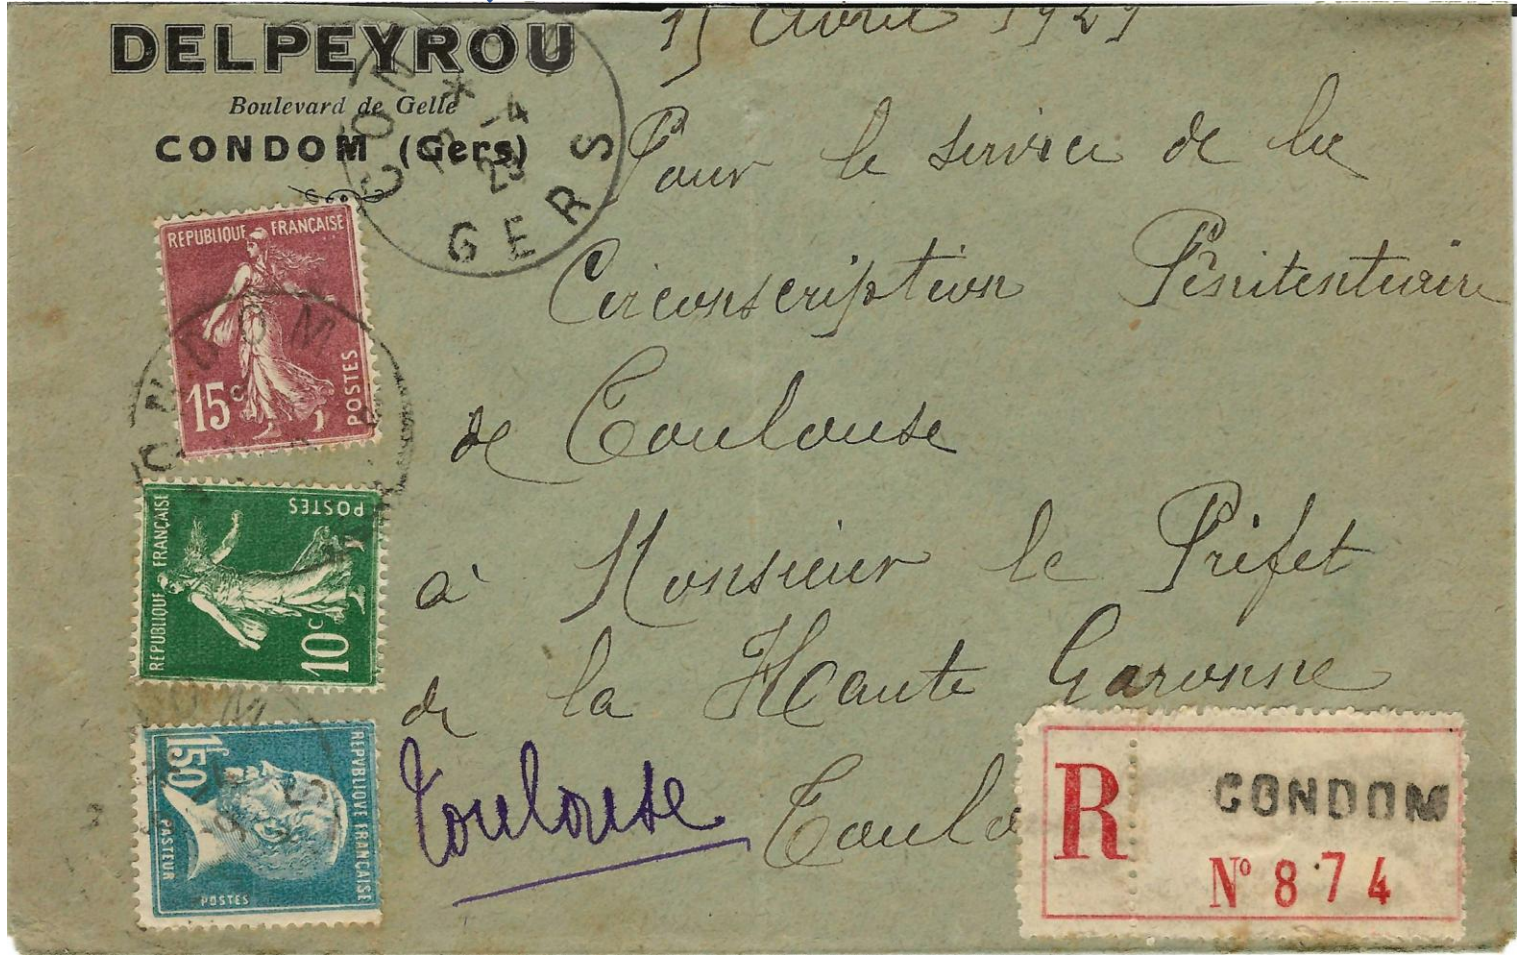 DELPEYROU
Boulevard de Gelle
CONDOM (Gers)
GERS
-4
15 Avril 1929
Pour le service de la
Circonscription Pénitentiaire
de Toulouse
à Monsieur le Préfet
de la Haute Garonne
Toulouse
Toulo
REPUBLIQUE FRANÇAISE
15c
POSTES
REPUBLIQUE FRANÇAISE
POSTES
10c
REPVBLIQVE FRANÇAISE
1f50
PASTEUR
POSTES
R
CONDOM
No 874